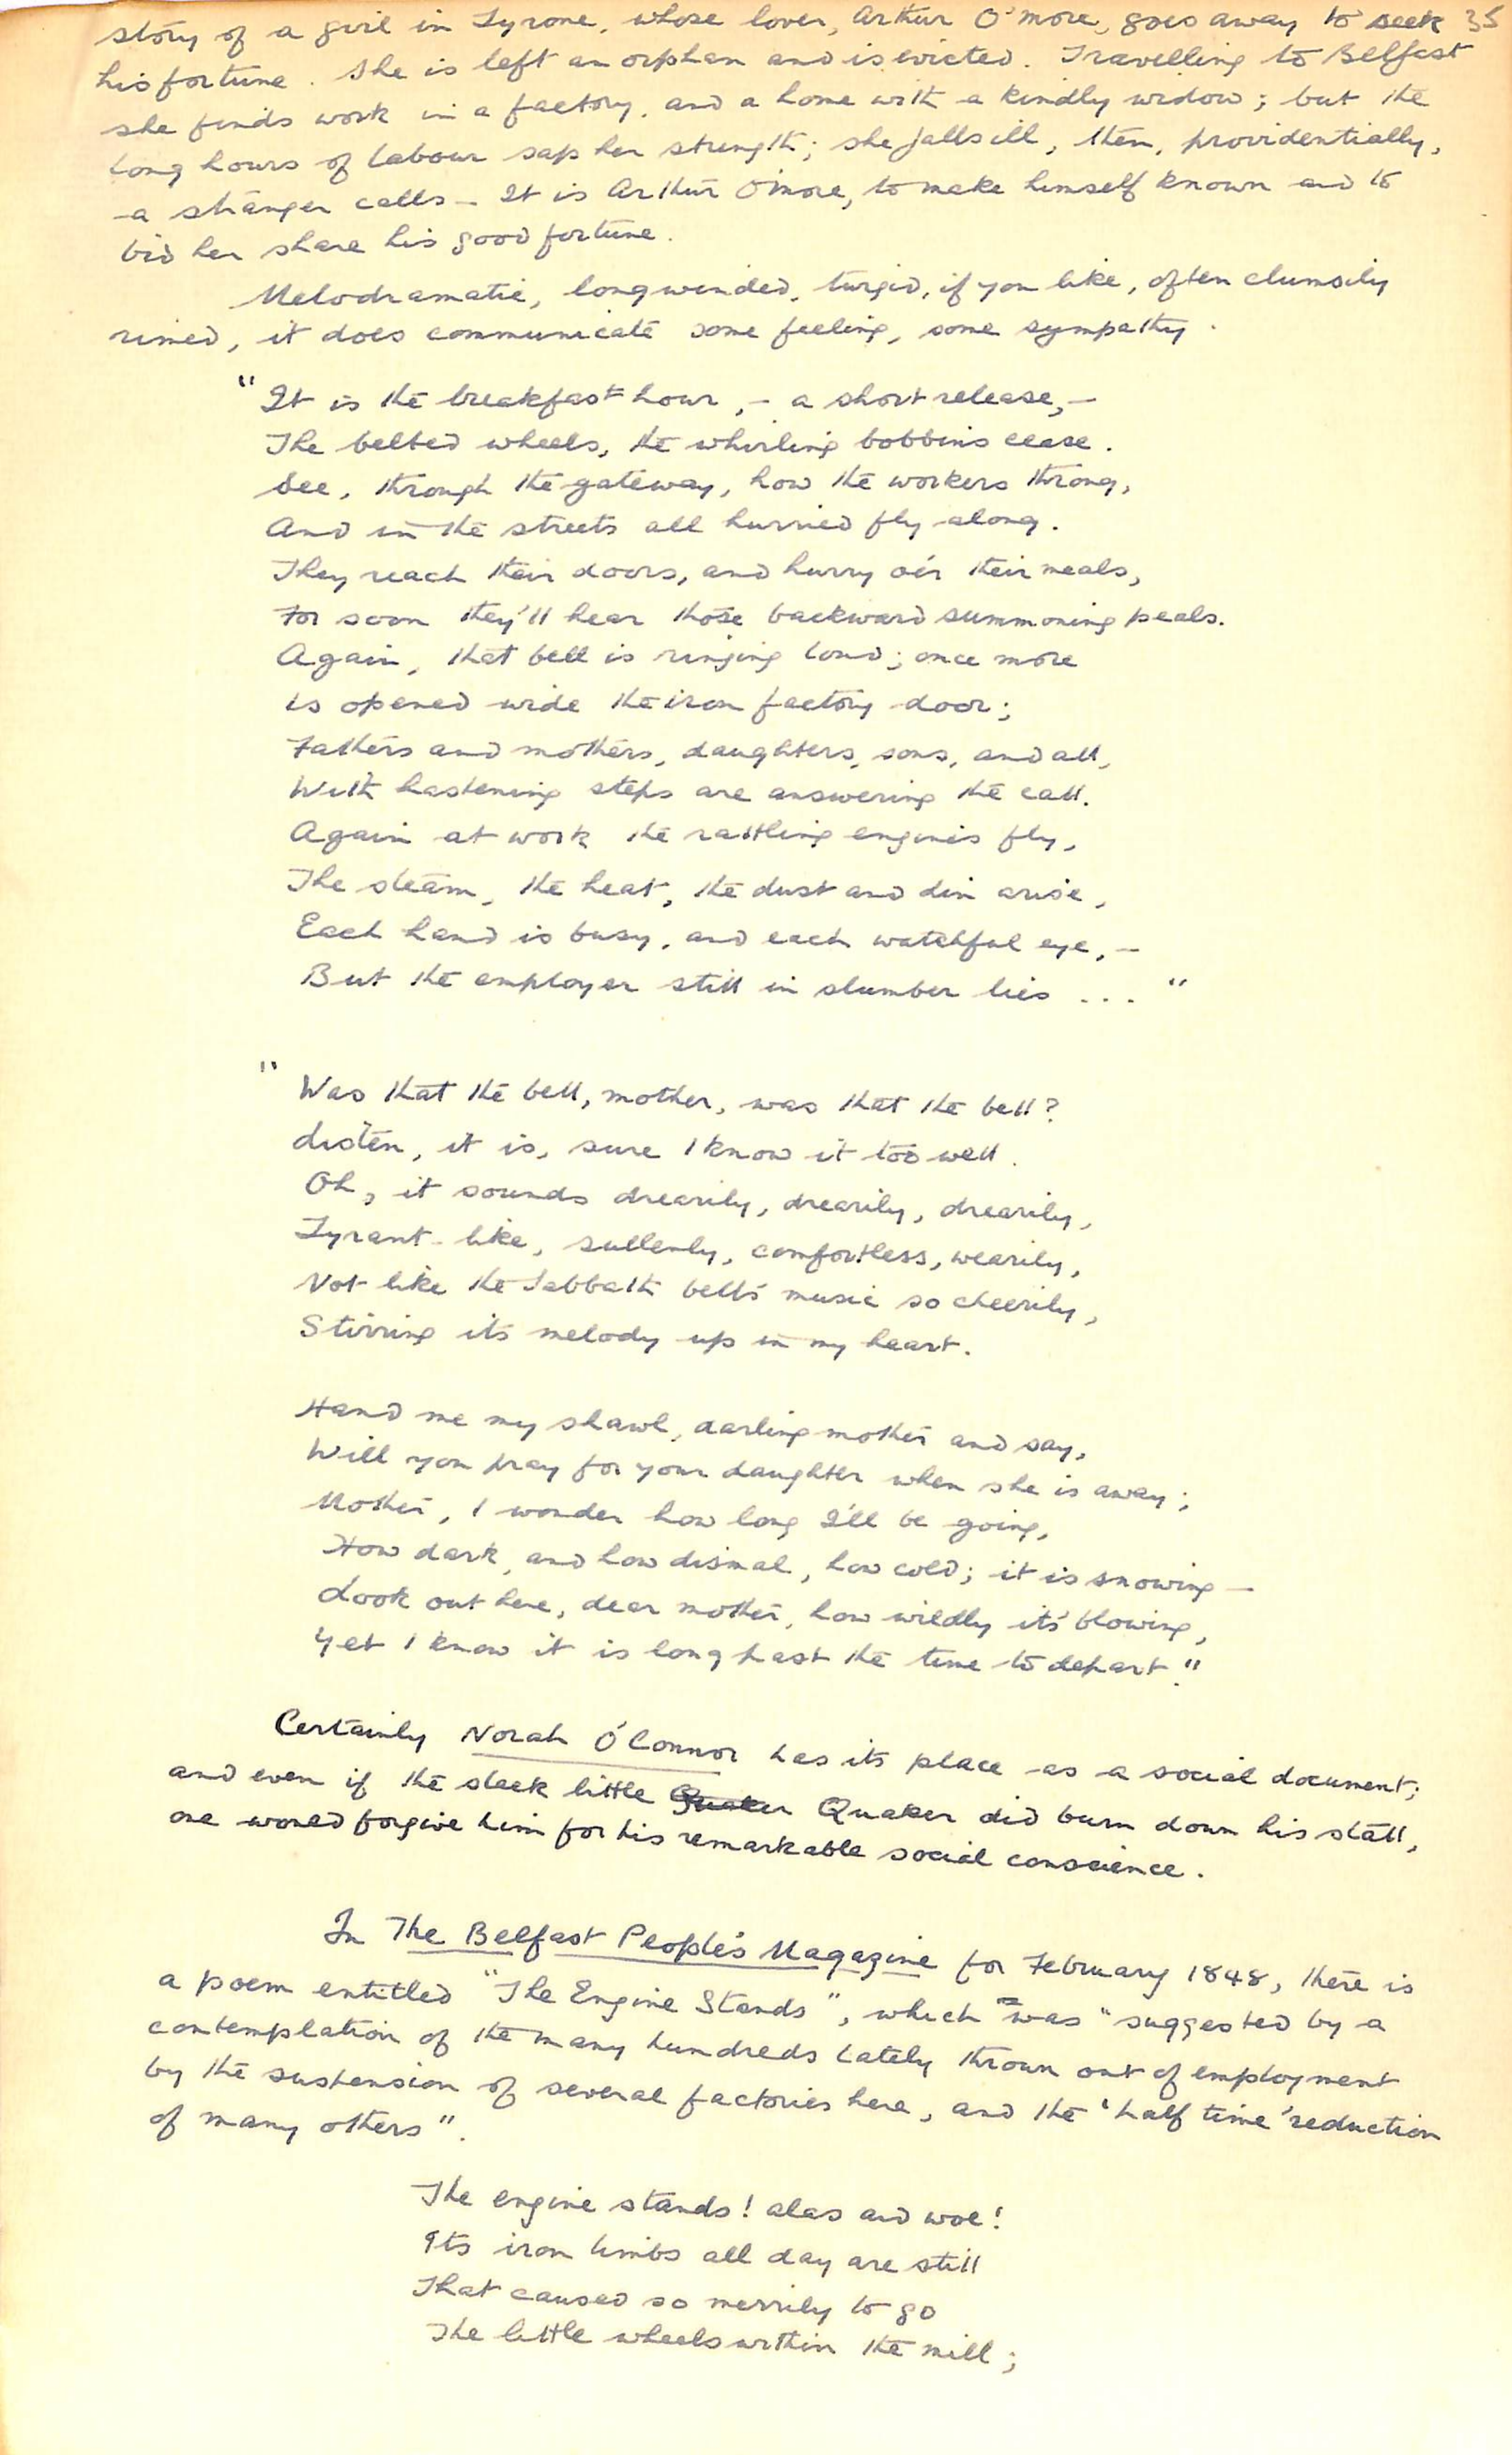 story of a girl in Tyrone, whose lover, Arthur O'More, goes away to seek 35
his fortune. She is left an orphan and is evicted. Travelling to Belfast
she finds work in a factory, and a home with a kindly widow; but the
long hours of labour sap her strength; she falls ill, then, providentially,
a stranger calls – It is Arthur O'More, to make himself known and to
bid her share his good fortune.
Melodramatic, longwinded, turgid, if you like, often clumsily
rimed, it does communicate some feeling, some sympathy.
"It is the breakfast hour, – a short release, –
The belted wheels, the whirling bobbins cease.
See, through the gateway, how the workers throng,
And in the streets all hurried fly along.
They reach their doors, and hurry o'er their meals,
For soon they'll hear those backward summoning peals.
Again, that bell is ringing loud; once more
is opened wide the iron factory door;
Fathers and mothers, daughters, sons, and all,
With hastening steps are answering the call.
Again at work the rattling engines fly,
The steam, the heat, the dust and din arise,
Each hand is busy, and each watchful eye, –
But the employer still in slumber lies ... "
"Was that the bell, mother, was that the bell?
Listen, it is, sure I know it too well.
Oh, it sounds drearily, drearily, drearily,
Tyrant-like, sullenly, comfortless, wearily,
Not like the Sabbath bell's music so cheerily,
Stirring its melody up in my heart.
Hand me my shawl, darling mother and say,
Will you pray for your daughter when she is away;
Mother, I wonder how long I'll be going,
How dark, and how dismal, how cold; it is snowing –
Look out here, dear mother, how wildly it's blowing,
Yet I know it is long past the time to depart."
Certainly Norah O'Connor has its place as a social document;
and even if the sleek little Quaker Quaker did burn down his stall,
one would forgive him for his remarkable social conscience.
In The Belfast People's Magazine for February 1848, there is
a poem entitled "The Engine Stands", which was "suggested by a
contemplation of the many hundreds lately thrown out of employment
by the suspension of several factories here, and the 'half time' reduction
of many others".
The engine stands! alas and woe!
Its iron limbs all day are still
That caused so merrily to go
The little wheels within the mill;